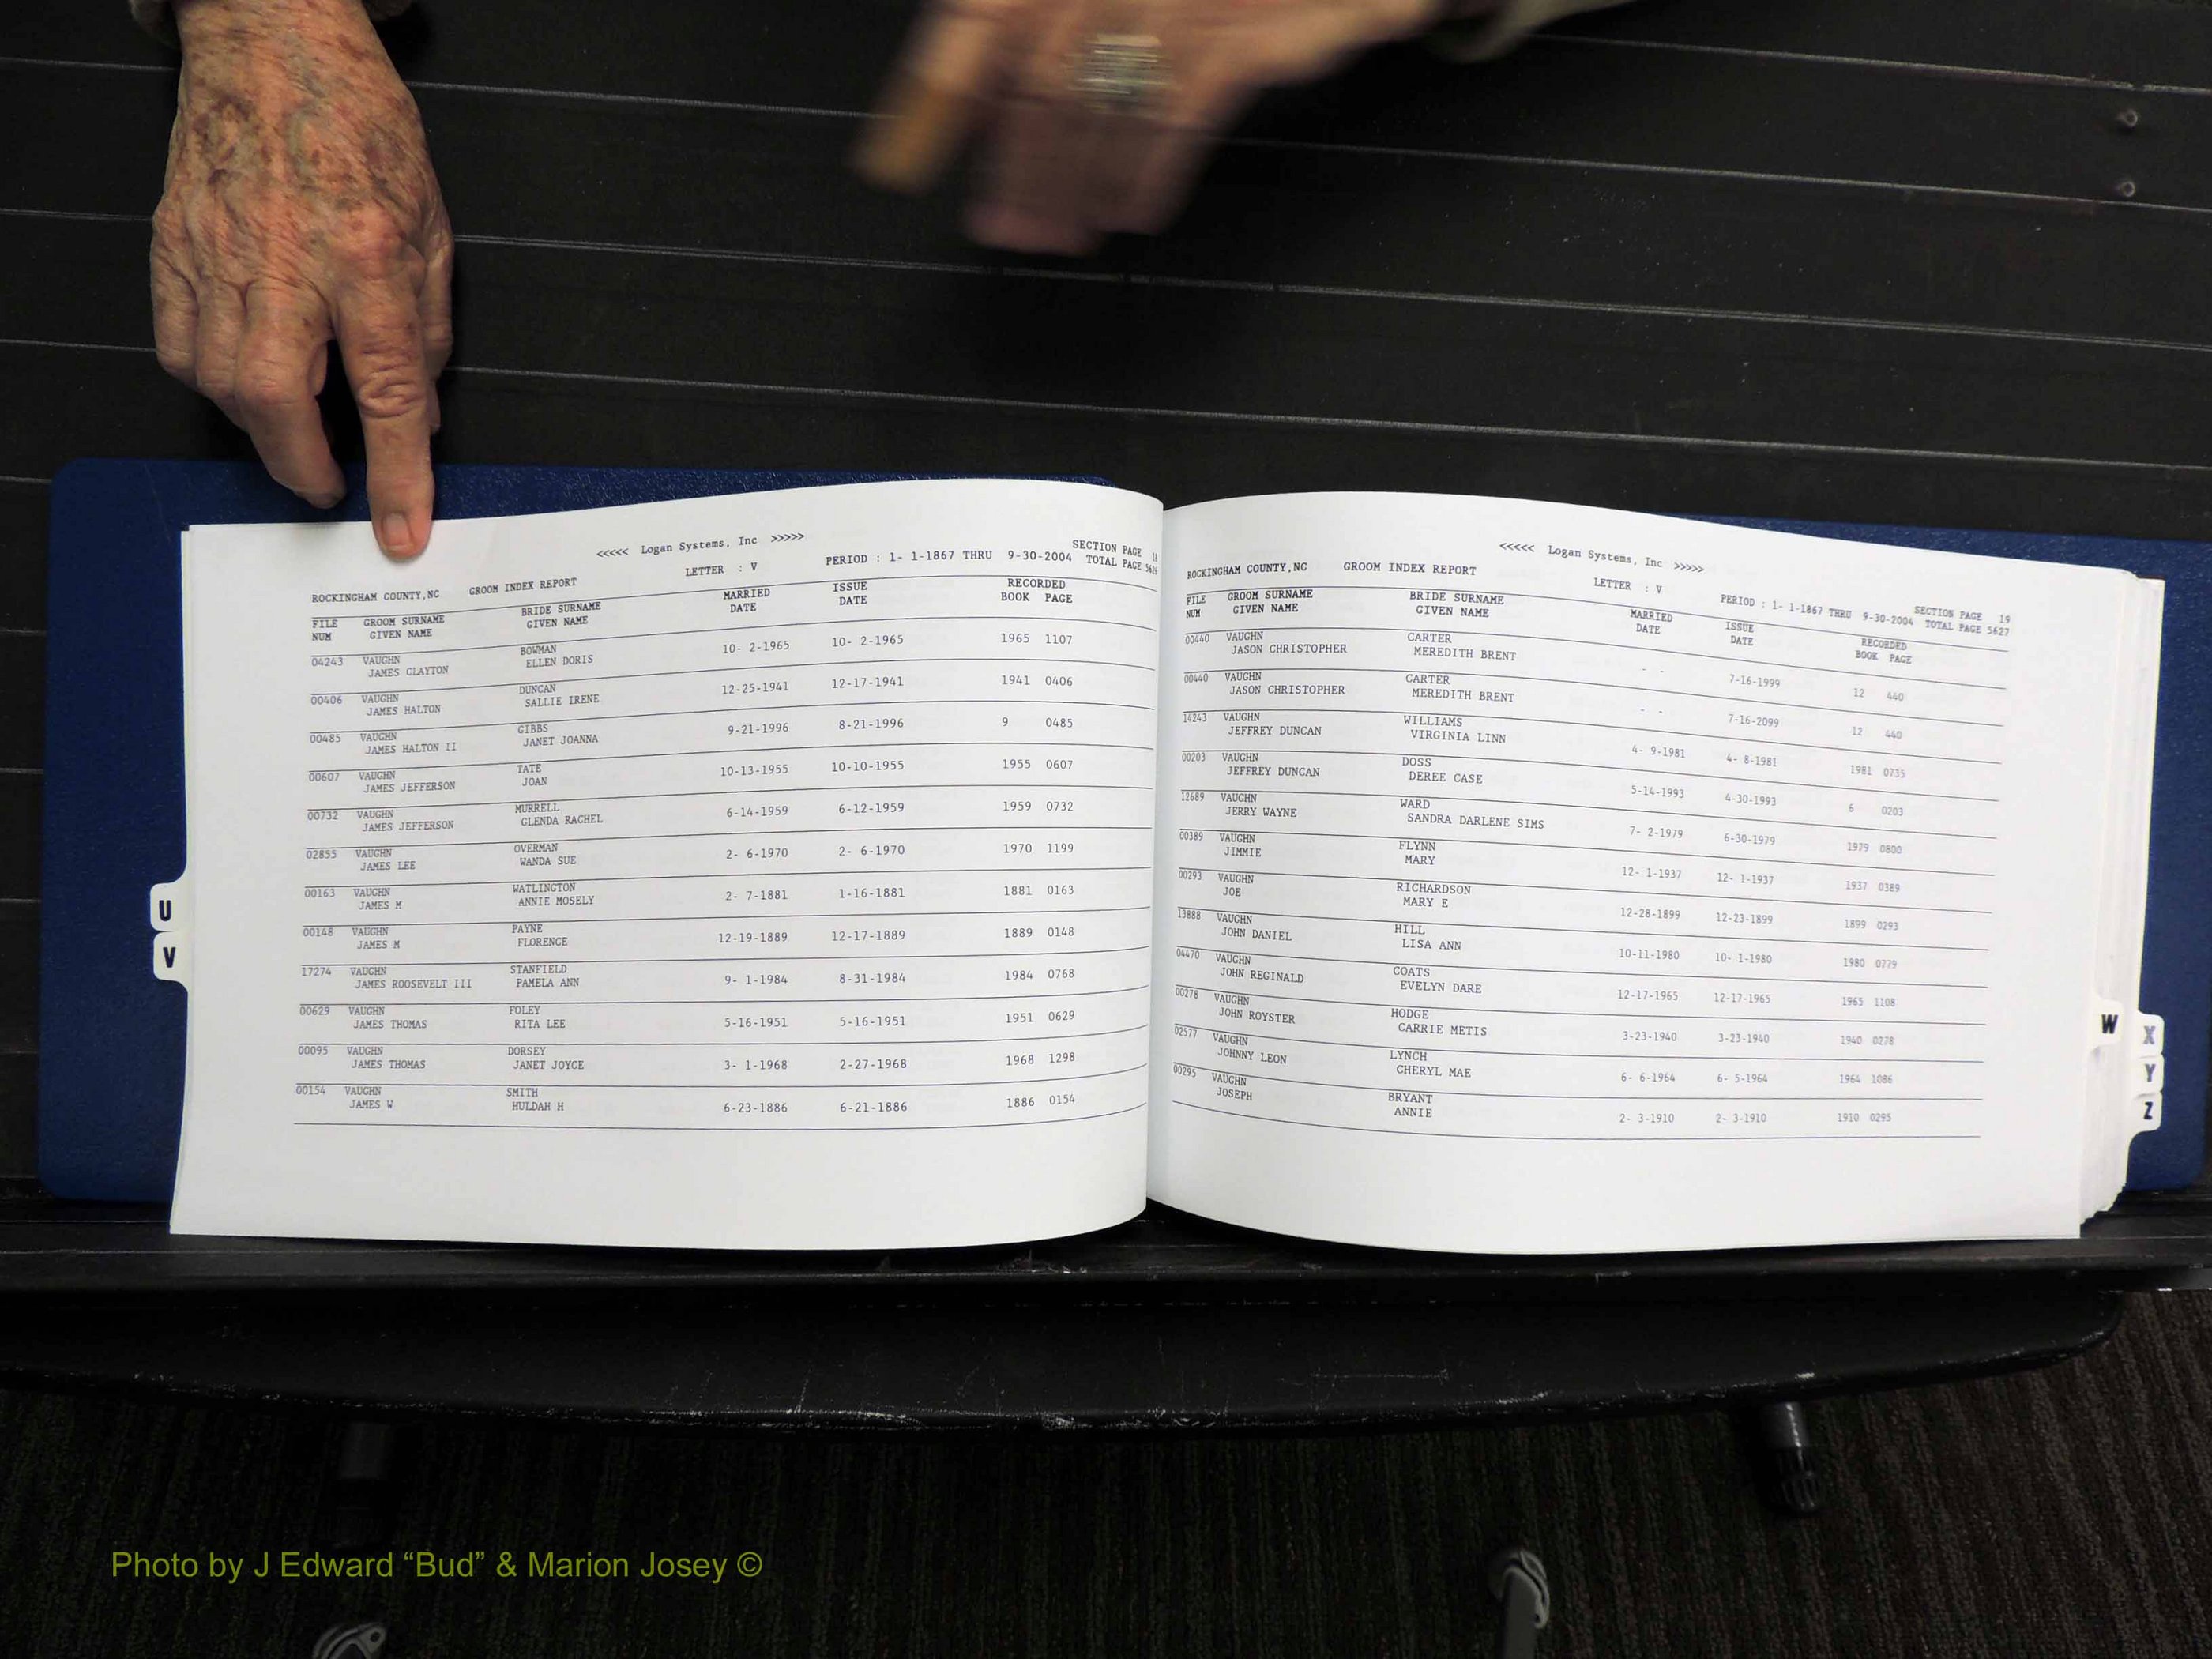 <<<<< Logan Systems, Inc >>>>>
SECTION PAGE 18
ROCKINGHAM COUNTY,NC GROOM INDEX REPORT LETTER : V PERIOD : 1- 1-1867 THRU 9-30-2004 TOTAL PAGE 5626
FILE GROOM SURNAME BRIDE SURNAME MARRIED ISSUE RECORDED
NUM GIVEN NAME GIVEN NAME DATE DATE BOOK PAGE
04243 VAUGHN BOWMAN 10- 2-1965 10- 2-1965 1965 1107
JAMES CLAYTON ELLEN DORIS
00406 VAUGHN DUNCAN 12-25-1941 12-17-1941 1941 0406
JAMES HALTON SALLIE IRENE
00485 VAUGHN GIBBS 9-21-1996 8-21-1996 9 0485
JAMES HALTON II JANET JOANNA
00607 VAUGHN TATE 10-13-1955 10-10-1955 1955 0607
JAMES JEFFERSON JOAN
00732 VAUGHN MURRELL 6-14-1959 6-12-1959 1959 0732
JAMES JEFFERSON GLENDA RACHEL
02855 VAUGHN OVERMAN 2- 6-1970 2- 6-1970 1970 1199
JAMES LEE WANDA SUE
00163 VAUGHN WATLINGTON 2- 7-1881 1-16-1881 1881 0163
JAMES M ANNIE MOSELY
00148 VAUGHN PAYNE 12-19-1889 12-17-1889 1889 0148
JAMES M FLORENCE
17274 VAUGHN STANFIELD 9- 1-1984 8-31-1984 1984 0768
JAMES ROOSEVELT III PAMELA ANN
00629 VAUGHN FOLEY 5-16-1951 5-16-1951 1951 0629
JAMES THOMAS RITA LEE
00095 VAUGHN DORSEY 3- 1-1968 2-27-1968 1968 1298
JAMES THOMAS JANET JOYCE
00154 VAUGHN SMITH 6-23-1886 6-21-1886 1886 0154
JAMES W HULDAH H
U
V
<<<<< Logan Systems, Inc >>>>>
SECTION PAGE 19
ROCKINGHAM COUNTY,NC GROOM INDEX REPORT LETTER : V PERIOD : 1- 1-1867 THRU 9-30-2004 TOTAL PAGE 5627
FILE GROOM SURNAME BRIDE SURNAME MARRIED ISSUE RECORDED
NUM GIVEN NAME GIVEN NAME DATE DATE BOOK PAGE
00440 VAUGHN CARTER - - 7-16-1999 12 440
JASON CHRISTOPHER MEREDITH BRENT
00440 VAUGHN CARTER - - 7-16-2099 12 440
JASON CHRISTOPHER MEREDITH BRENT
14243 VAUGHN WILLIAMS 4- 9-1981 4- 8-1981 1981 0735
JEFFREY DUNCAN VIRGINIA LINN
00203 VAUGHN DOSS 5-14-1993 4-30-1993 6 0203
JEFFREY DUNCAN DEREE CASE
12689 VAUGHN WARD 7- 2-1979 6-30-1979 1979 0800
JERRY WAYNE SANDRA DARLENE SIMS
00389 VAUGHN FLYNN 12- 1-1937 12- 1-1937 1937 0389
JIMMIE MARY
00293 VAUGHN RICHARDSON 12-28-1899 12-23-1899 1899 0293
JOE MARY E
13888 VAUGHN HILL 10-11-1980 10- 1-1980 1980 0779
JOHN DANIEL LISA ANN
04470 VAUGHN COATS 12-17-1965 12-17-1965 1965 1108
JOHN REGINALD EVELYN DARE
00278 VAUGHN HODGE 3-23-1940 3-23-1940 1940 0278
JOHN ROYSTER CARRIE METIS
02577 VAUGHN LYNCH 6- 6-1964 6- 5-1964 1964 1086
JOHNNY LEON CHERYL MAE
00295 VAUGHN BRYANT 2- 3-1910 2- 3-1910 1910 0295
JOSEPH ANNIE
W
X
Y
Z
Photo by J Edward “Bud” & Marion Josey ©